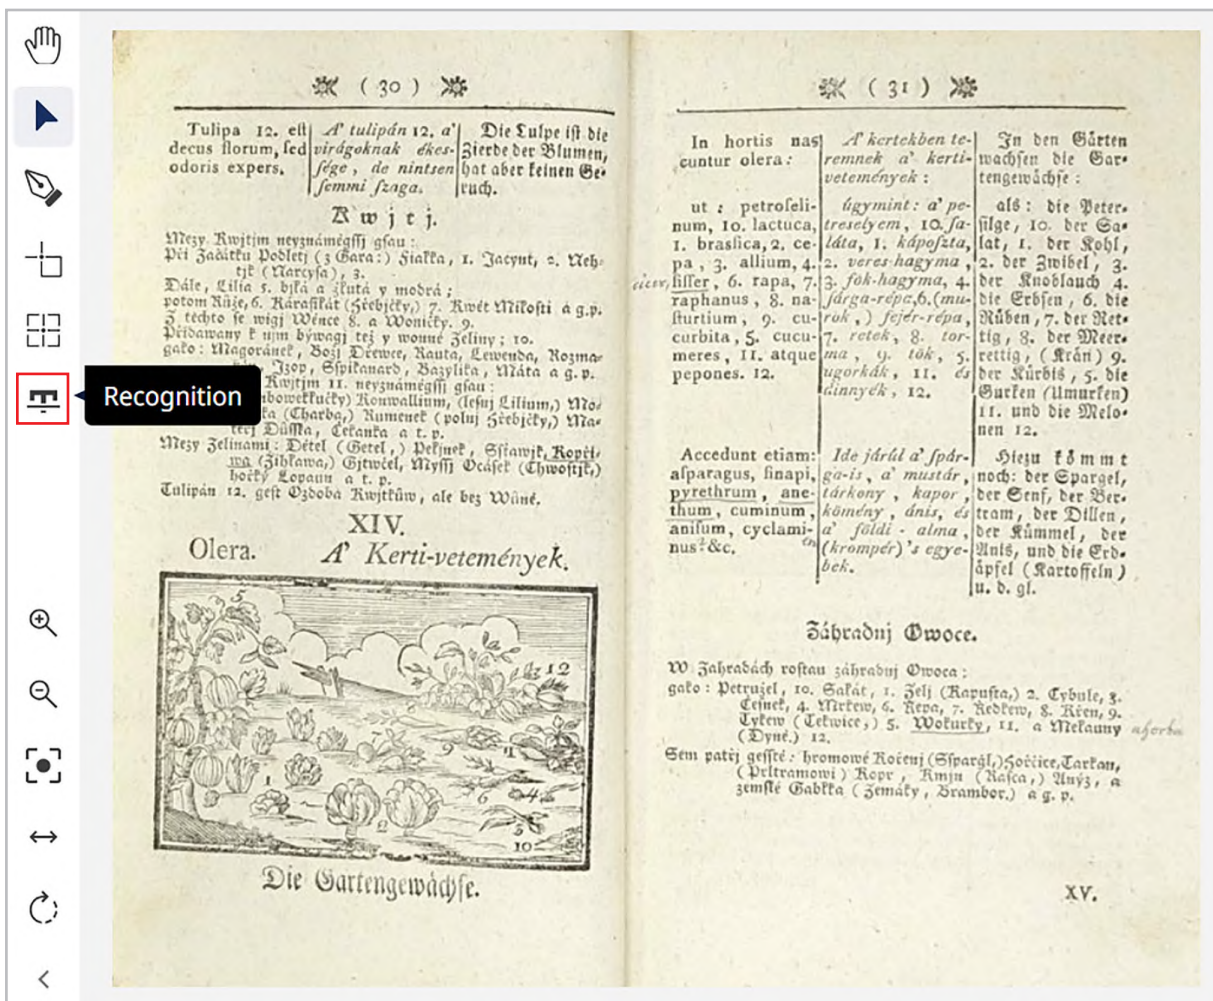 Recognition
( 30 )
Tulipa 12. eſt
decus florum, ſed
odoris expers.
A' tulipán 12. a'
virágoknak ékes-
ſége, de nintsen
ſemmi ſzaga.
Die Tulpe iſt die
Zierde der Blumen,
hat aber keinen Ge-
ruch.
Kwjtj.
Mezy Kwjtjm neyznáměgſſj gſau:
Při Začátku Podletj (z Gara:) Fialka, 1. Jacynt, 2. Neh-
tjk (Narcyſa), 3.
Dále, Lilia 5. bjlá a žlutá y modrá;
potom Růže, 6. Karafikát (Hřebjčky,) 7. Kwět Miloſti a g.p.
Z těchto ſe wigj Wěnce 8. a Woničky. 9.
Přidawany k njm býwagj též y wonné Zeliny; 10.
gako: Magoránek, Božj Dřewec, Rauta, Lewenda, Rozma-
Jzop, Sspikanard, Bazylika, Máta a g. p.
Kwjtjm 11. neyznáměgſſj gſau:
Konwallium, (leſnj Lilium,) Mo-
(Charba,) Rumenek (polnj Hřebjčky,) Ma-
Čekanka a t. p.
Mezy Zelinami: Dětel (Getel,) Pelynek, Sſťawjk, Kopři-
wa (Žihlawa,) Gjtrocel, Myſſj Ocáſek (Chwoſtjk,)
hořký Lopaun a t. p.
Tulipán 12. geſt Ozdoba Kwjtkůw, ale bez Wůně.
XIV.
Olera. A' Kerti-vetemények.
5
12
7
9
11
1
6
4
3
2
10
Die Gartengewächſe.
( 31 )
In hortis naſ
cuntur olera:
ut: petroſeli-
num, 10. lactuca,
1. braſſica, 2. ce-
pa, 3. allium, 4.
ſiſſer, 6. rapa, 7.
raphanus, 8. na-
ſturtium, 9. cu-
curbita, 5. cucu-
meres, 11. atque
pepones. 12.
Accedunt etiam:
aſparagus, ſinapi,
pyrethrum, ane-
thum, cuminum,
aniſum, cyclami-
nus &c.
A' kertekben te-
remnek a' kerti-
vetemények:
úgymint: a' pe-
treselyem, 10. ſa-
láta, 1. kápoſzta,
2. veres-hagyma,
3. fok-hagyma, 4.
ſárga-répa, 6. (mu-
rok,) fejér-répa,
7. retek, 8. tor-
ma, 9. tök, 5.
ugorkák, 11. és
dinnyék, 12.
Ide járúl a' ſpár-
ga-is, a' mustár,
tárkony, kapor,
kömény, ánis, és
a' földi-alma,
(krompér) 's egye-
bek.
In den Gärten
wachſen die Gar-
tengewächſe:
als: die Peter-
ſilge, 10. der Sa-
lat, 1. der Kohl,
2. der Zwibel, 3.
der Knoblauch 4.
die Erbſen, 6. die
Rüben, 7. der Ret-
tig, 8. der Meer-
rettig, (Krän) 9.
der Kürbis, 5. die
Gurken (Umurken)
11. und die Melo-
nen 12.
Hiezu kömmt
noch: der Spargel,
der Senf, der Ber-
tram, der Dillen,
der Kümmel, der
Anis, und die Erd-
äpfel (Kartoffeln)
u. d. gl.
Záhradnj Owoce.
W Zahradách roſtau záhradnj Owoca:
gako: Petružel, 10. Salát, 1. Zelj (Kapuſta,) 2. Cybule, 3.
Čeſnek, 4. Mrkew, 6. Řepa, 7. Ředkew, 8. Křen, 9.
Tykew (Tekwice,) 5. Wokurky, 11. a Melauny
(Dyně.) 12.
Sem patřj geſſtě: hromowé Kořenj (Sſpargl,) Hořčice, Tarkan,
(Peltramowi) Kopr, Kmjn (Raſca,) Anýz, a
zemſké Gablka (Zemáky, Brambor.) a g. p.
XV.